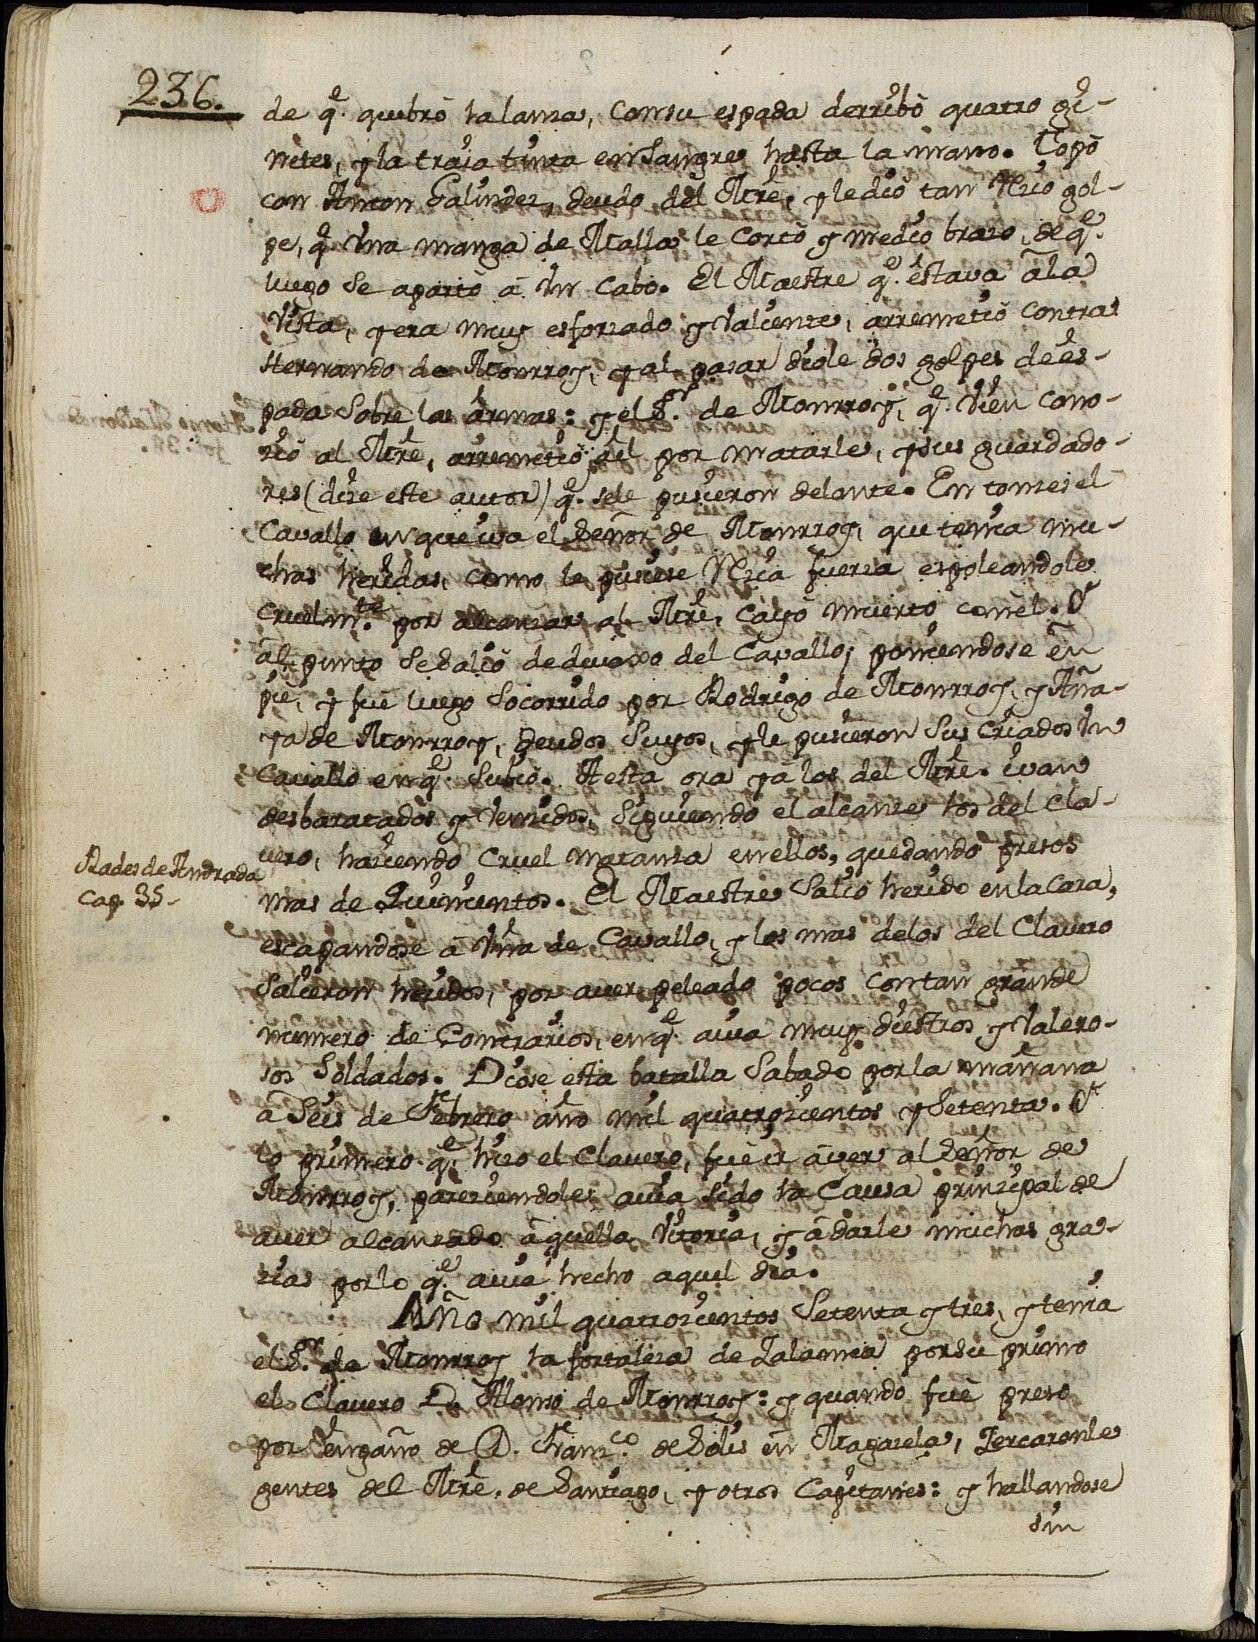 236.
de q.e quebrò la lanza, con su espada derribò quatro gi-
netes, y la traia tinta en sangre hasta la mano. Topò
con Anton Galindez, deudo del Mtrẽ, y le diò tan rezio gol-
pe, q.e una manga de Malla le cortò y medio brazo, de q.e
luego se apartò à un cabo. El Maestre q.e estava à la
vista, y era muy esforzado y valiente, arremetiò contra
Hernando de Monrroy, y al pasar diole dos golpes de es-
pada sobre las armas: y el S.or de Monrroy, q.e bien cono-
ziò al Mtrẽ, arremetiò à èl por matarle, y sus guardado-
res (dize este autor) q.e se le pusieron delante. Entonzes el
Cavallo en que iva el Señor de Monrroy, que tenia mu-
chas heridas, como le pusiese rezia fuerza espoleandole
cruelm.te por alcanzar al Mtrẽ, cayò muerto con èl. Y
al punto se saliò de devaxo del Cavallo, poniendose en
piè, y fuè luego socorrido por Rodrigo de Monrroy, y Aña-
ya de Monrroy, deudos suyos, y le pusieron sus criados un
Cavallo en q.e subiò. A esta ora ya los del Mtrẽ. ivan
desbaratados y venzidos, siguiendo el alcanze los del Cla-
vero, haziendo cruel matanza en ellos, quedando presos
Rades de Andrada
Cap. 35-
mas de Quinientos. El Maestre saliò herido en la cara,
escapandose à uña de Cavallo, y los mas de los del Clavero
salieron heridos, por aver peleado pocos con tan grande
numero de Contrarios, en q.e avia muy diestros y valero-
sos Soldados. Diose esta batalla Sabado por la mañana
à Seis de Febrero año mil quatrozientos y Setenta. Y
lo primero q.e hizo el Clavero, fuè ir à ver al Señor de
Monrroy, pareziendole, avia sido la causa prinzipal de
aver alcanzado aquella vitoria, y à darle muchas gra-
zias por lo q.e avia hecho aquel dia.
Año mil quatrozientos Setenta y tres, y tenia
el S.or de Monrroy la fortaleza de Zalamea por su primo
el Clavero D. Alonso de Monrroy: y quando fuè preso
por engaño de D. Franz.co de Solis en Magazela, Zercaronle
gentes del Mtrẽ. de Santiago, y otros Capitanes: y hallandose
sin